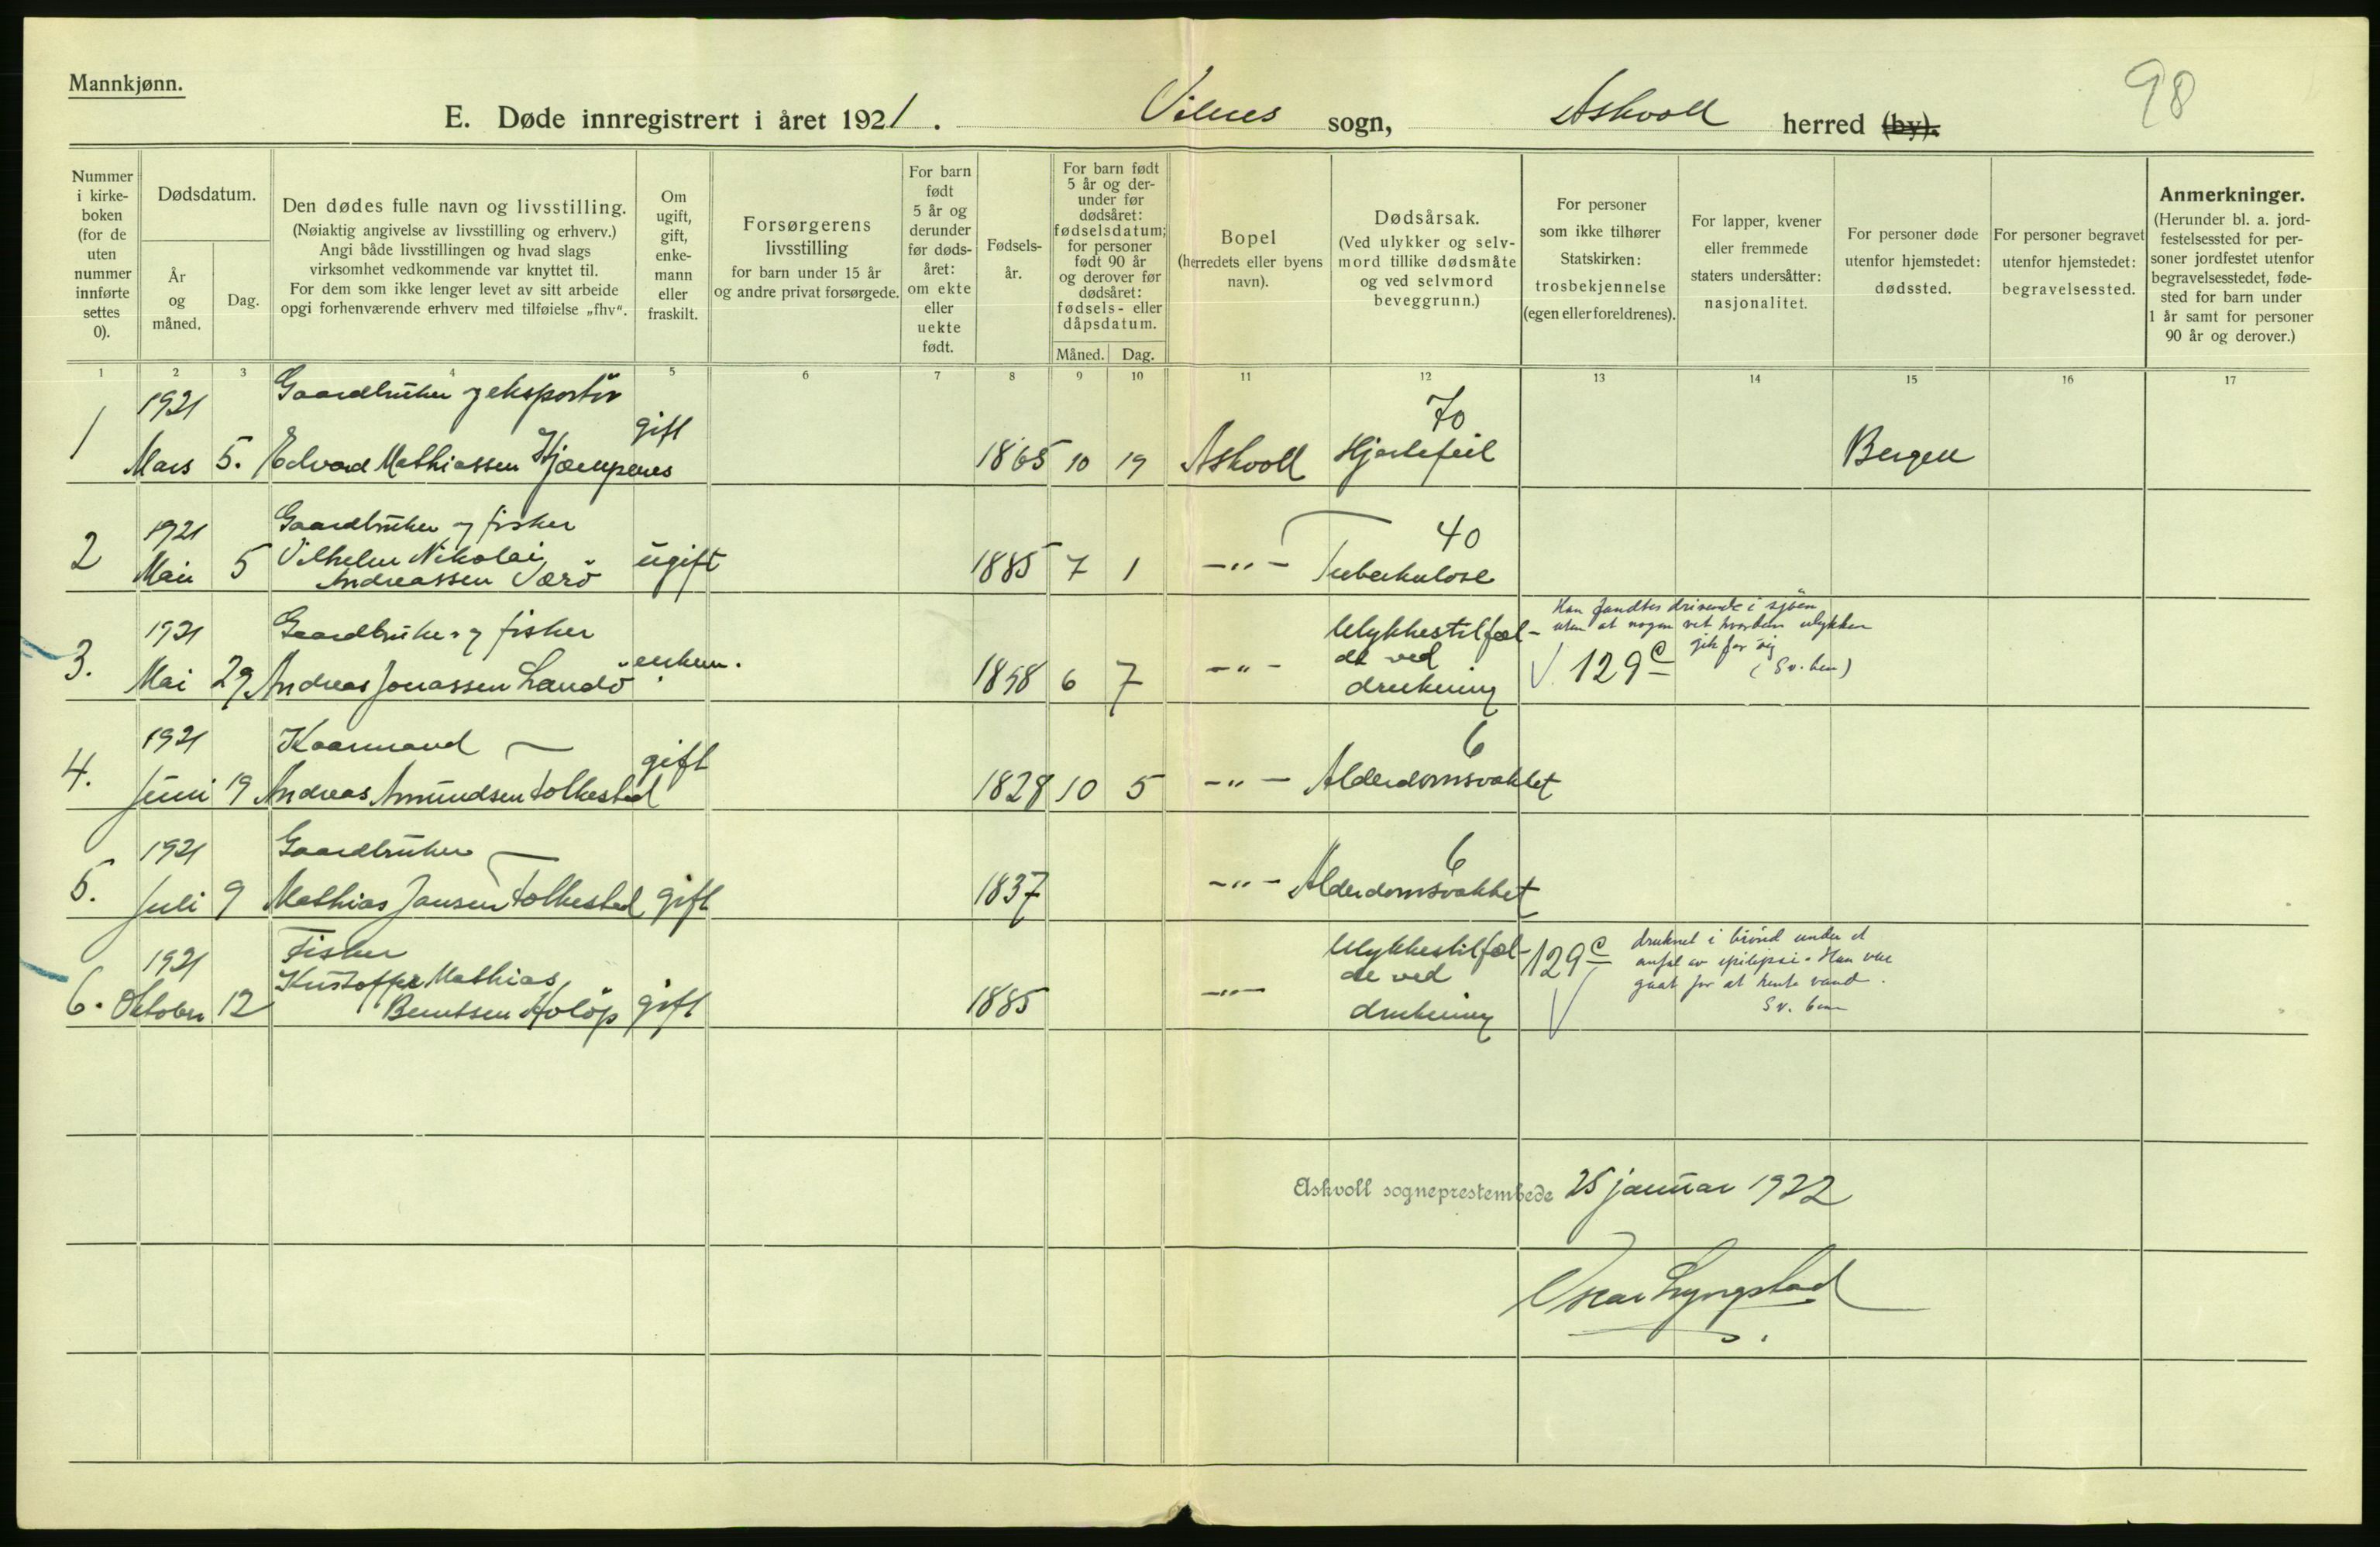 Mannkjønn.
98
E. Døde innregistrert i året 1921. Vilnes sogn, Askvoll herred (by).
Nummer i kirke- boken (for de uten nummer innførte settes 0).
Dødsdatum.
År og måned.
Dag.
Den dødes fulle navn og livsstilling.
(Nøiaktig angivelse av livsstilling og erhverv.)
Angi både livsstillingen og hvad slags
virksomhet vedkommende var knyttet til.
For dem som ikke lenger levet av sitt arbeide
opgi forhenværende erhverv med tilføielse „fhv“.
Om ugift, gift, enke- mann eller fraskilt.
Forsørgerens
livsstilling
for barn under 15 år
og andre privat forsørgede.
For barn født 5 år og derunder før døds- året: om ekte eller uekte født.
Fødsels- år.
For barn født 5 år og der- under før dødsåret: fødselsdatum; for personer født 90 år og derover før dødsåret: fødsels- eller dåpsdatum.
Måned.
Dag.
Bopel
(herredets eller byens
navn).
Dødsårsak.
(Ved ulykker og selv-
mord tillike dødsmåte
og ved selvmord
beveggrunn.)
For personer
som ikke tilhører
Statskirken:
trosbekjennelse
(egen eller foreldrenes).
For lapper, kvener
eller fremmede
staters undersåtter:
nasjonalitet.
For personer døde
utenfor hjemstedet:
dødssted.
For personer begravet
utenfor hjemstedet:
begravelsessted.
Anmerkninger.
(Herunder bl. a. jord-
festelsessted for per-
soner jordfestet utenfor
begravelsesstedet, føde-
sted for barn under
1 år samt for personer
90 år og derover.)
1 2 3 4 5 6 7 8 9 10 11 12 13 14 15 16 17
1921 Gaardbruker og eksportör 70
1 Mars 5. Edvard Mathiassen Hjæmpenes gift 1865 10 19 Askvoll Hjertefeil Bergen
1921 Gaardbruker og fisker 40
2 Mai 5 Vilhelm Nikolai ugift 1885 7 1 -"- Tuberkulose
Andreassen Værö
1921 Gaardbruker og fisker Ulykkestilfæl- Han fandtes drivende i sjöen
uten at nogen vet hvordan ulykken
gik for sig
3. Mai 29 Andreas Jonassen Landö enkem. 1858 6 7 -"- de ved 129c (Sv. ben)
drukning
1921 Kaarmand 6
4. Juni 19 Andreas Amundsen Folkestad gift 1828 10 5 -"- Alderdomsvakhet
1921 Gaardbruker 6
5. Juli 9 Mathias Jansen Folkestad gift 1837 -"- Alderdomsvakhet
1921 Fisker Ulykkestilfæl- 129c druknet i brönd under et
Kristoffer Mathias de ved anfal av epilepsi. Han var
gaat for at hente vand.
6. Oktober 12 Berntsen gift 1885 -"- drukning Sv. ben
Askvoll sogneprestembede 25 januar 1922
Oscar Lyngstad